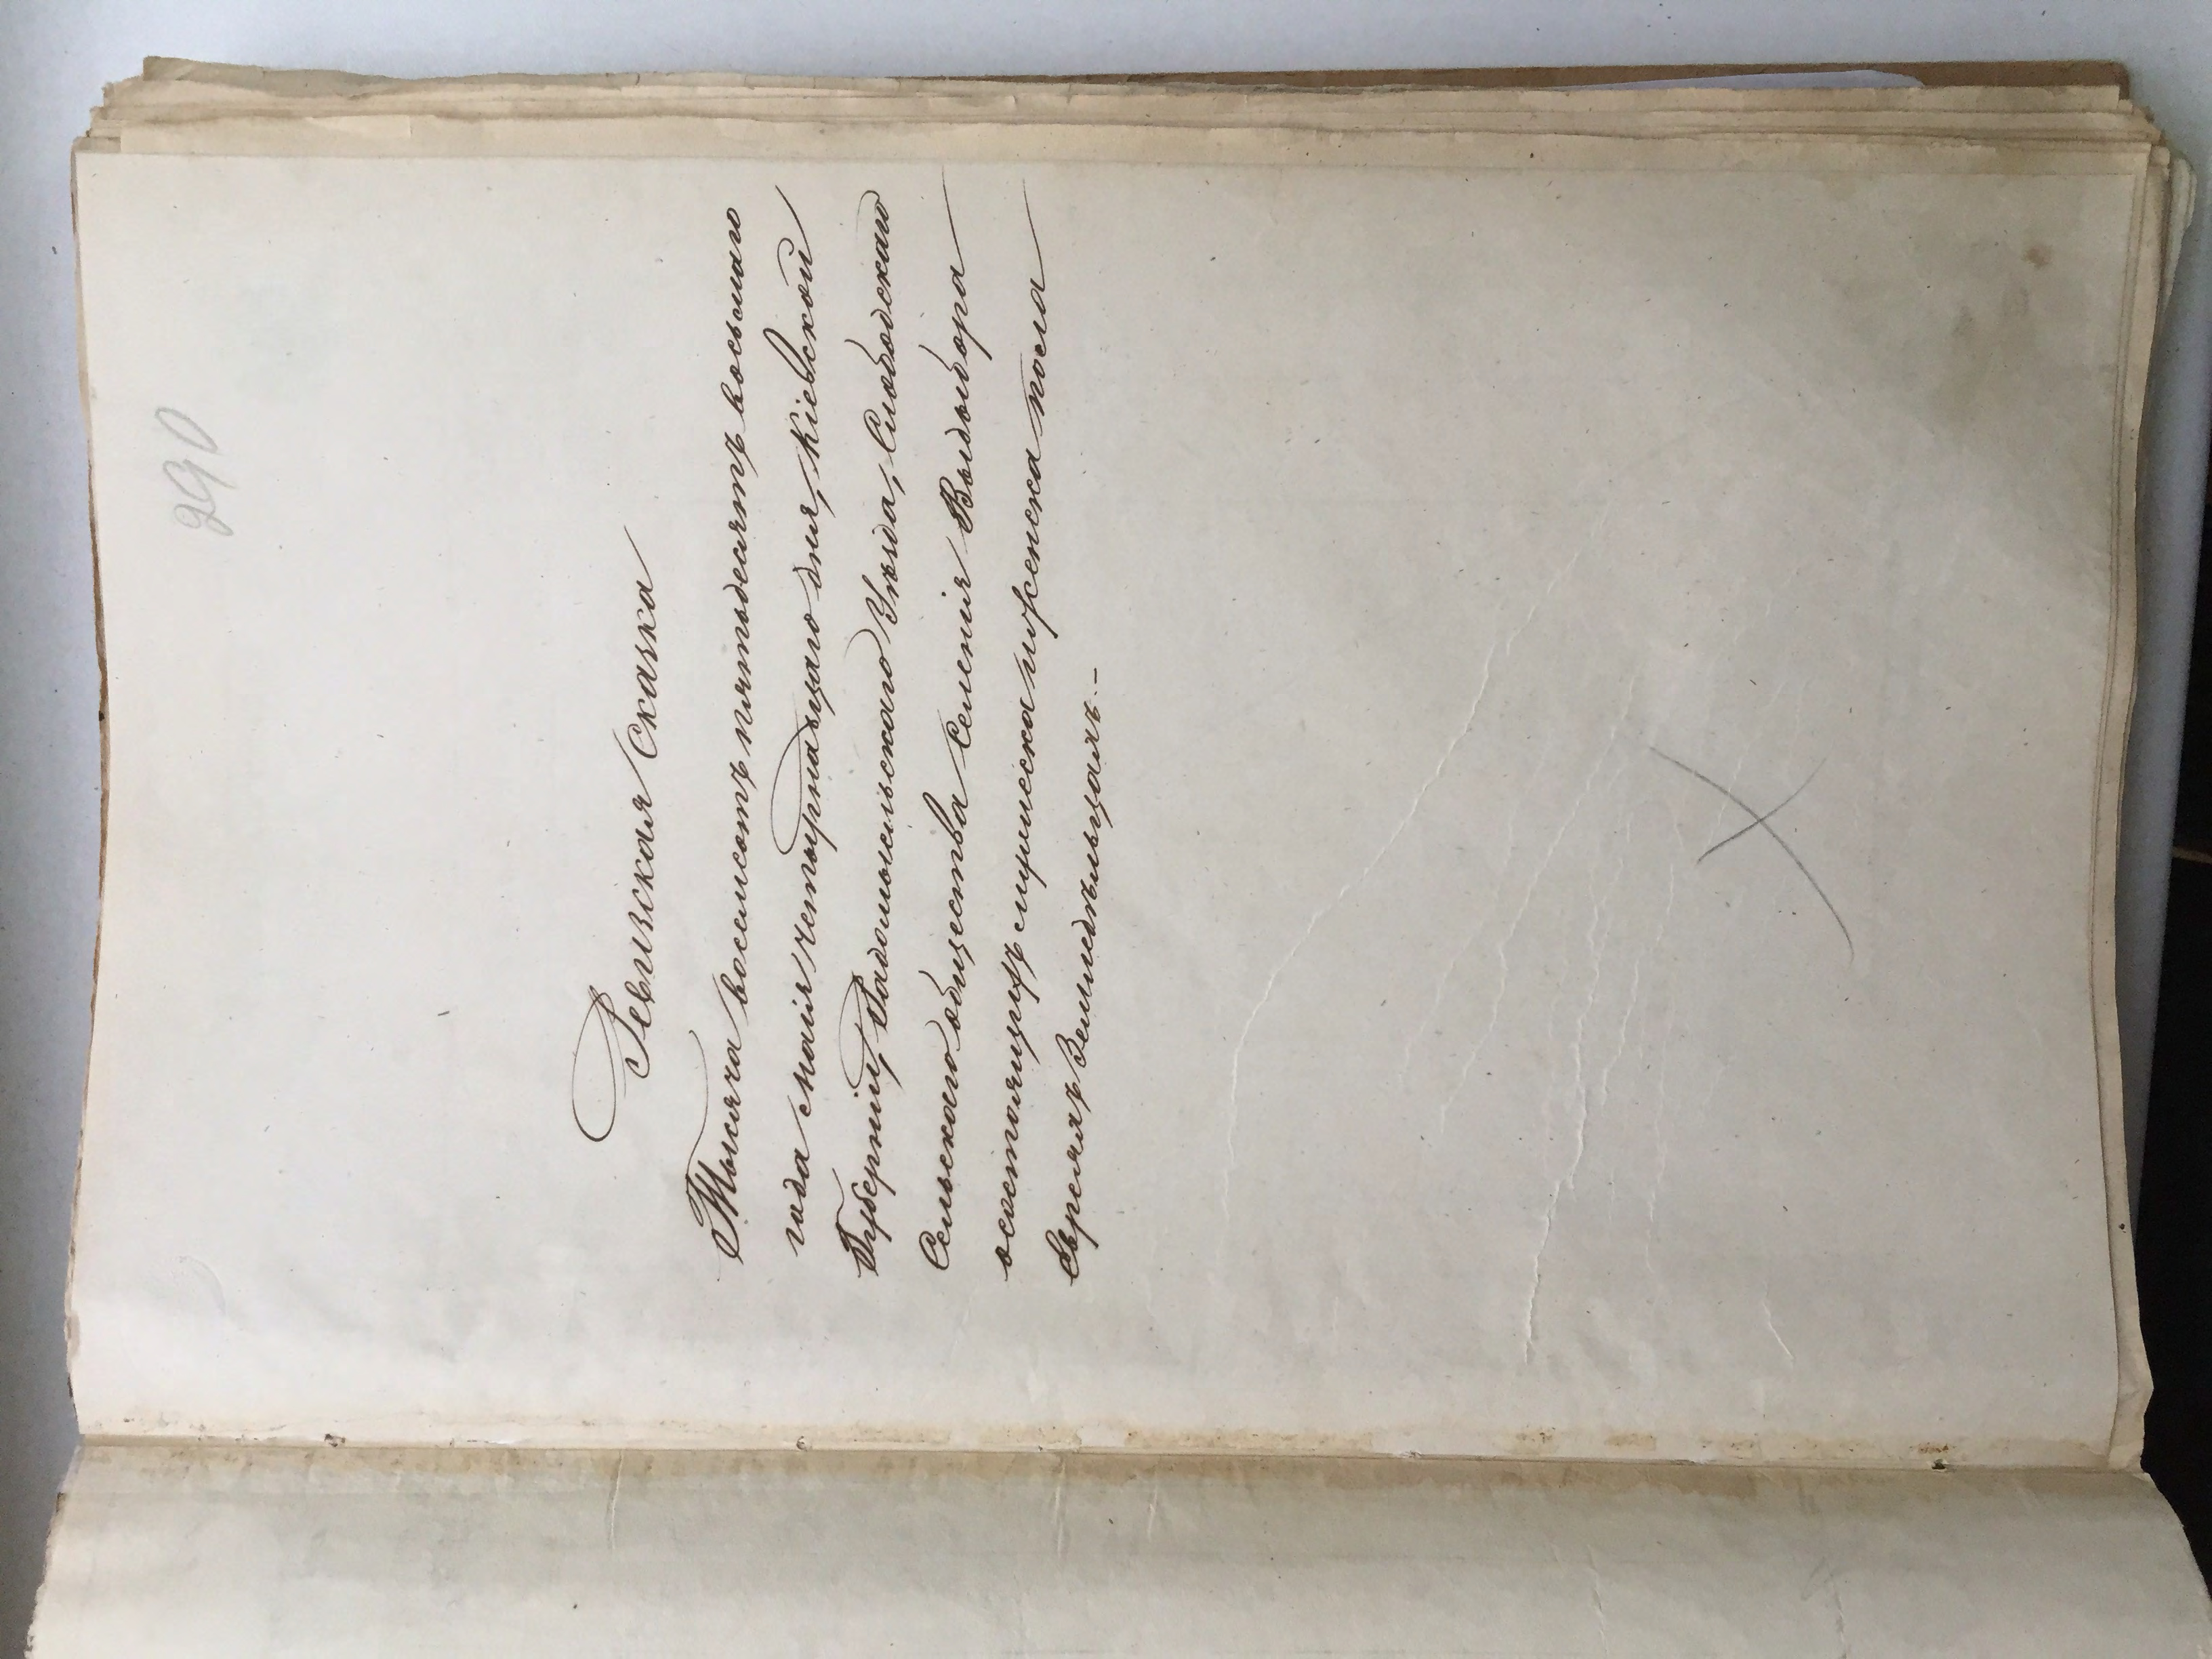 290
Ревизская Сказка
Тысяча восемсотъ пятьдесятъ восьмаго
года маія четырнадцаго дня, Кіевской
Губерніи, Радомысельскаго Уѣзда, Слободскаго
Сельскаго общества Селенія Выдыбора
осостоящихъ мужеска и женска пола
Евреяхъ Земледѣльцахъ.-